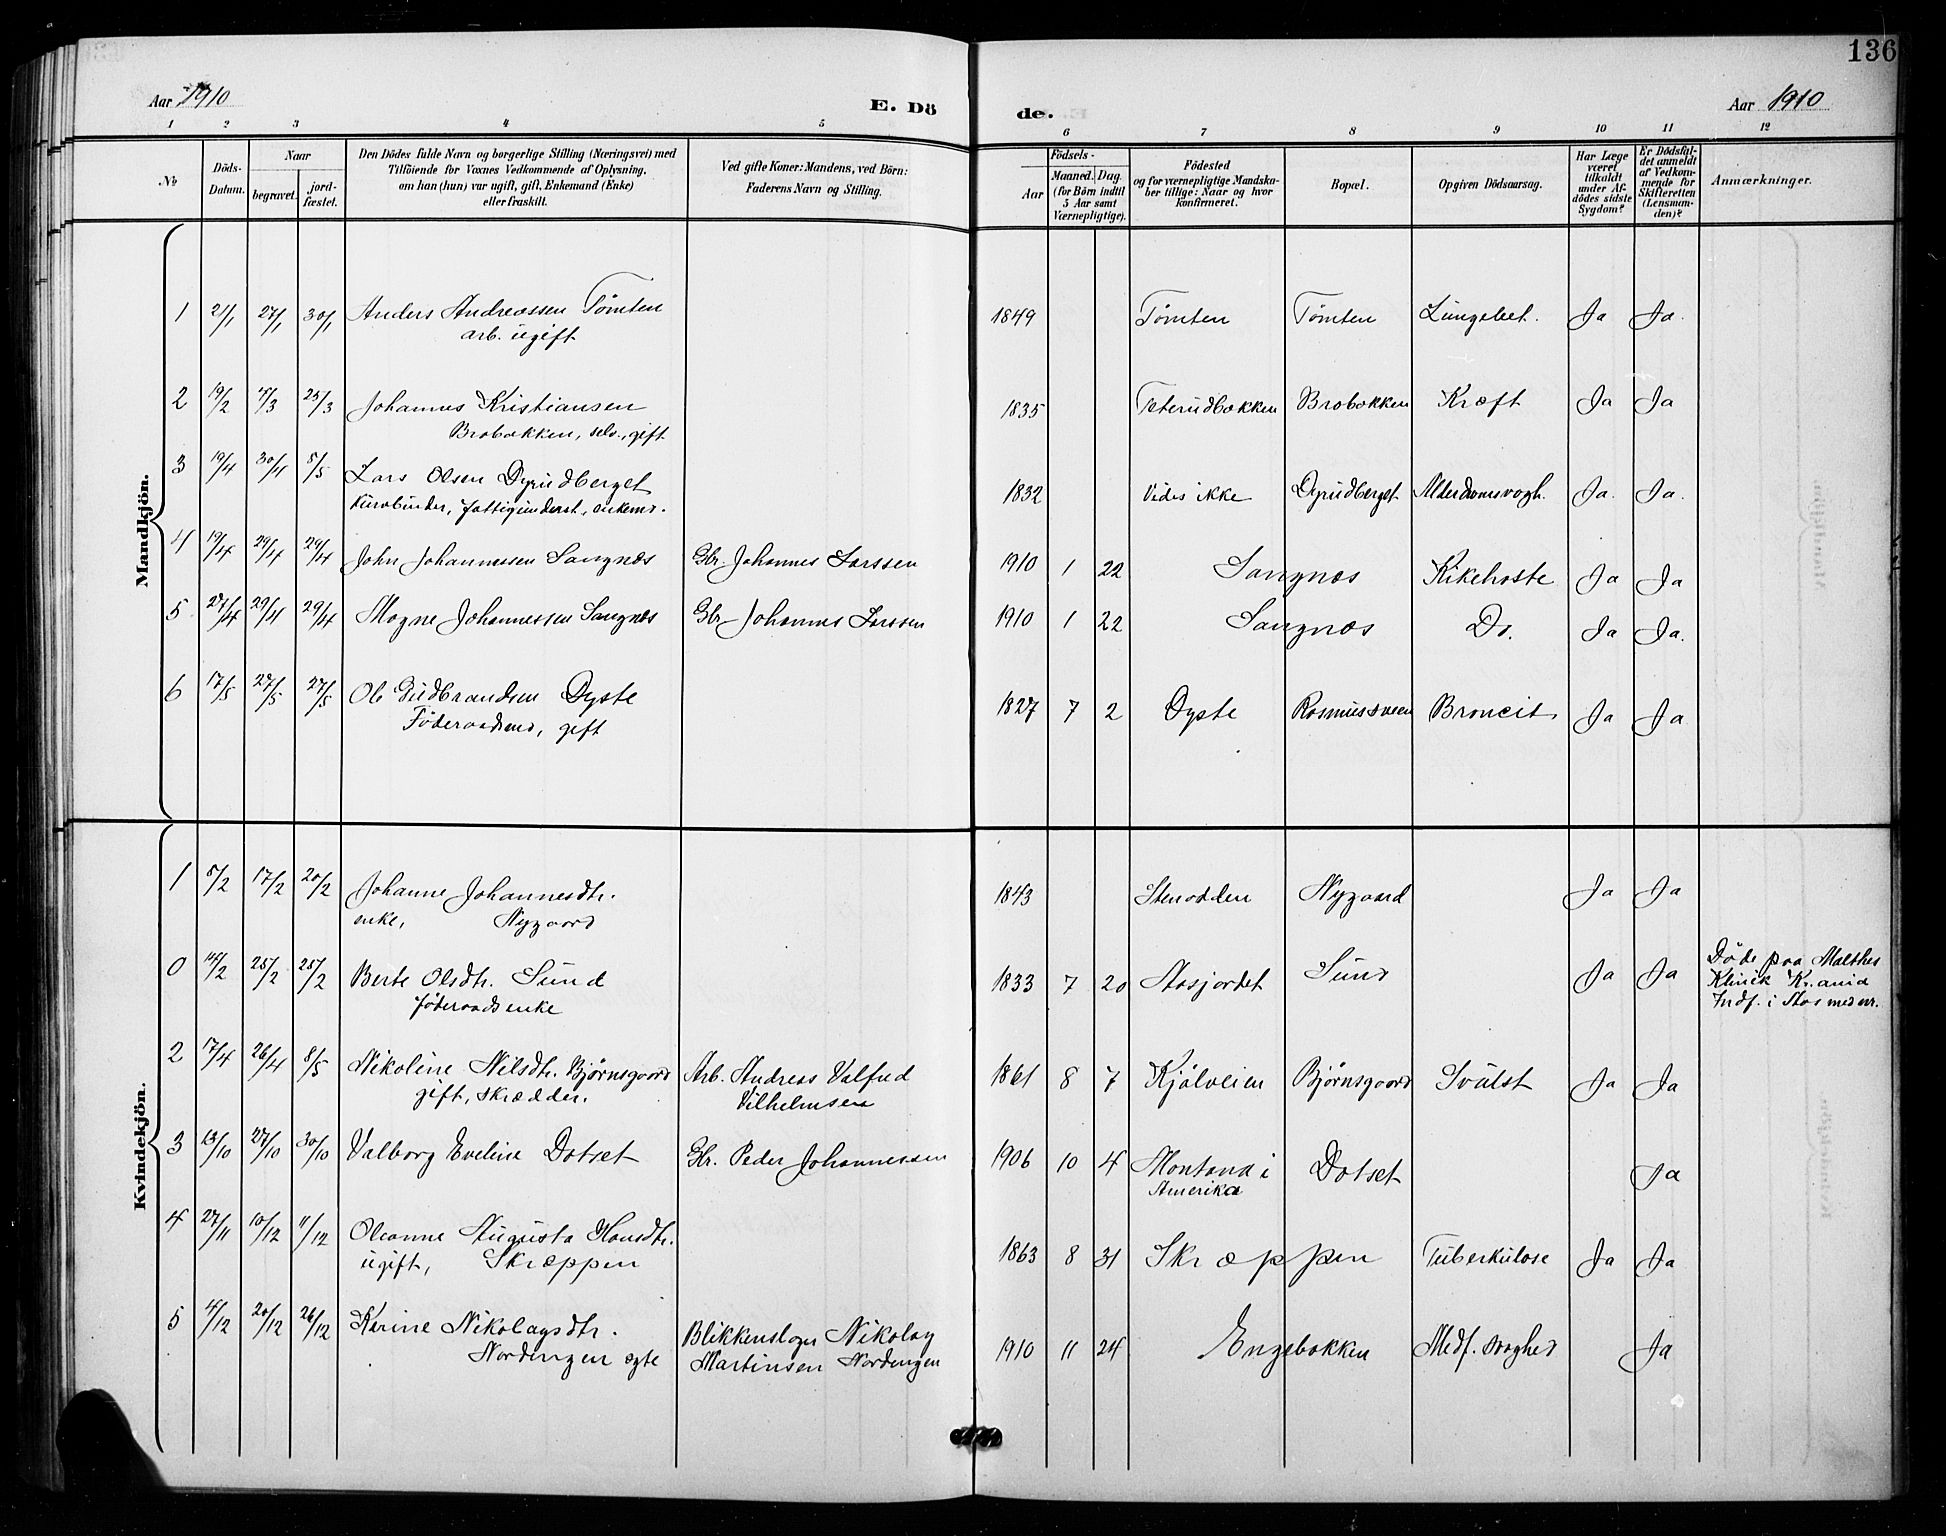 136
Aar 1910
E. Dö
de.
Aar 1910
1 2 3 4 5 6 7 8 9 10 11 12
No
Döds-Datum.
Naar
begravet.
jord-fæstet.
Den Dödes fulde Navn og borgerlige Stilling (Næringsvei) med
Tilföiende for Voxnes Vedkommende af Oplysning,
om han (hun) var ugift, gift, Enkemand (Enke)
eller fraskilt.
Ved gifte Koner: Mandens, ved Börn:
Faderens Navn og Stilling.
Födsels-
Aar
Maaned. Dag.
(for Börn indtil
5 Aar samt
Værnepligtige).
Födested
og for værnepligtige Mandska-
ber tillige: Naar og hvor
konfirmeret.
Bopæl.
Opgiven Dödsaarsag.
Har Læge
været
tilkaldt
under Af-
dödes sidste
Sygdom?
Er Dödsfal-
det anmeldt
af Vedkom-
mende for
Skifteretten
(Lensman-
den)?
Anmærkninger.
Mandkjön.
1 21/1 27/1 30/1 Anders Andreassen Tømten 1849 Tømten Tømten Lungebet. Ja Ja.
arb. ugift
2 19/2 4/3 25/3 Johannes Kristiansen 1835 Teterudbakken Brobakken Kræft Ja Ja
Brobakken, selv., gift
3 19/4 30/4 8/5 Lars Olsen Dyrudberget 1832 Vides ikke Dyrudberget Alderdomsvagh. Ja. Ja.
Kurvbinder, fattigunderst., enkem.
4 19/4 29/4 29/4 John Johannessen Sangnæs Gbr. Johannes Larssen 1910 1 22 Sangnæs Kikehoste Ja Ja
5 27/4 29/4 29/4 Magne Johannessen Sangnæs Gbr Johannes Larssen 1910 1 22 Sangnæs Do. Ja Ja.
6 17/5 27/5 27/5 Ole Gudbrandsen Dyste 1827 7 2 Dyste Rasmussveen Broncit Ja Ja
Föderaadsmd, gift
Kvindekjön.
1 8/2 17/2 20/2 Johanne Johannesdtr. 1843 Stenodden Nygaard Ja Ja
enke, Nygaard
0 14/2 25/2 25/2 Berte Olsdtr. Sund 1833 7 20 Aasjordet Sund Ja Ja Döde paa Malthes
föderaadsenke Klinik Kr.ania
Indf. i Aas med nr.
2 17/4 26/4 8/5 Nikoline Nilsdtr. Björnsgaard Arb. Andreas Valfred 1861 8 7 Kjölveien Björnsgaard Svulst Ja Ja
gift, skrædder. Vilhelmsen
3 13/10 27/10 30/10 Valborg Eveline Dotset Gbr. Peder Johannessen 1906 10 4 Montana i Dotset Ja
Amerika
4 27/11 10/12 11/12 Oleanne Augusta Hansdtr. 1863 8 31 Skræppen Tuberkulose Ja Ja
ugift, Skræppen
5 4/12 20/12 26/12 Karine Nikolaysdtr. Blikkenslager Nikolay 1910 11 24 Engebakken Medf. svaghed Ja
Nordengen ægte Martinsen Nordengen